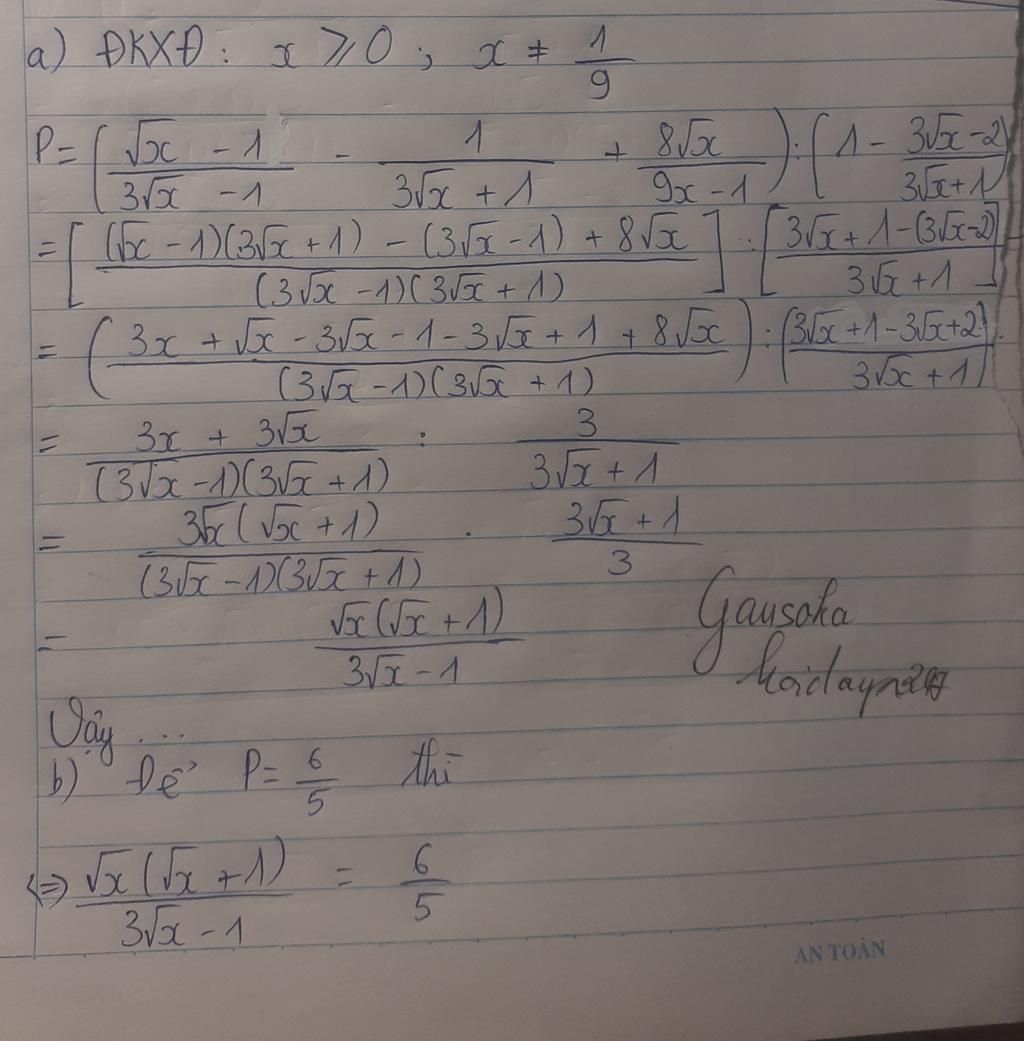 a) ĐKXĐ: x ⩾ 0 ; x ≠ 1/9
P = ( (√x - 1)/(3√x - 1) - 1/(3√x + 1) + 8√x/(9x - 1) ) : ( 1 - (3√x - 2)/(3√x + 1)
= [ ((√x - 1)(3√x + 1) - (3√x - 1) + 8√x)/((3√x - 1)(3√x + 1)) ] : [ (3√x + 1 - (3√x - 2))/(3√x + 1) ]
= ( (3x + √x - 3√x - 1 - 3√x + 1 + 8√x)/((3√x - 1)(3√x + 1)) ) : ( (3√x + 1 - 3√x + 2)/(3√x + 1) )
= (3x + 3√x)/((3√x - 1)(3√x + 1)) : 3/(3√x + 1)
= 3√x(√x + 1)/((3√x - 1)(3√x + 1)) . (3√x + 1)/3
= √x(√x + 1)/(3√x - 1)
Gausoka
Vậy ...
b) Để P = 6/5 thì
<=> √x(√x + 1)/(3√x - 1) = 6/5
AN TOÀN